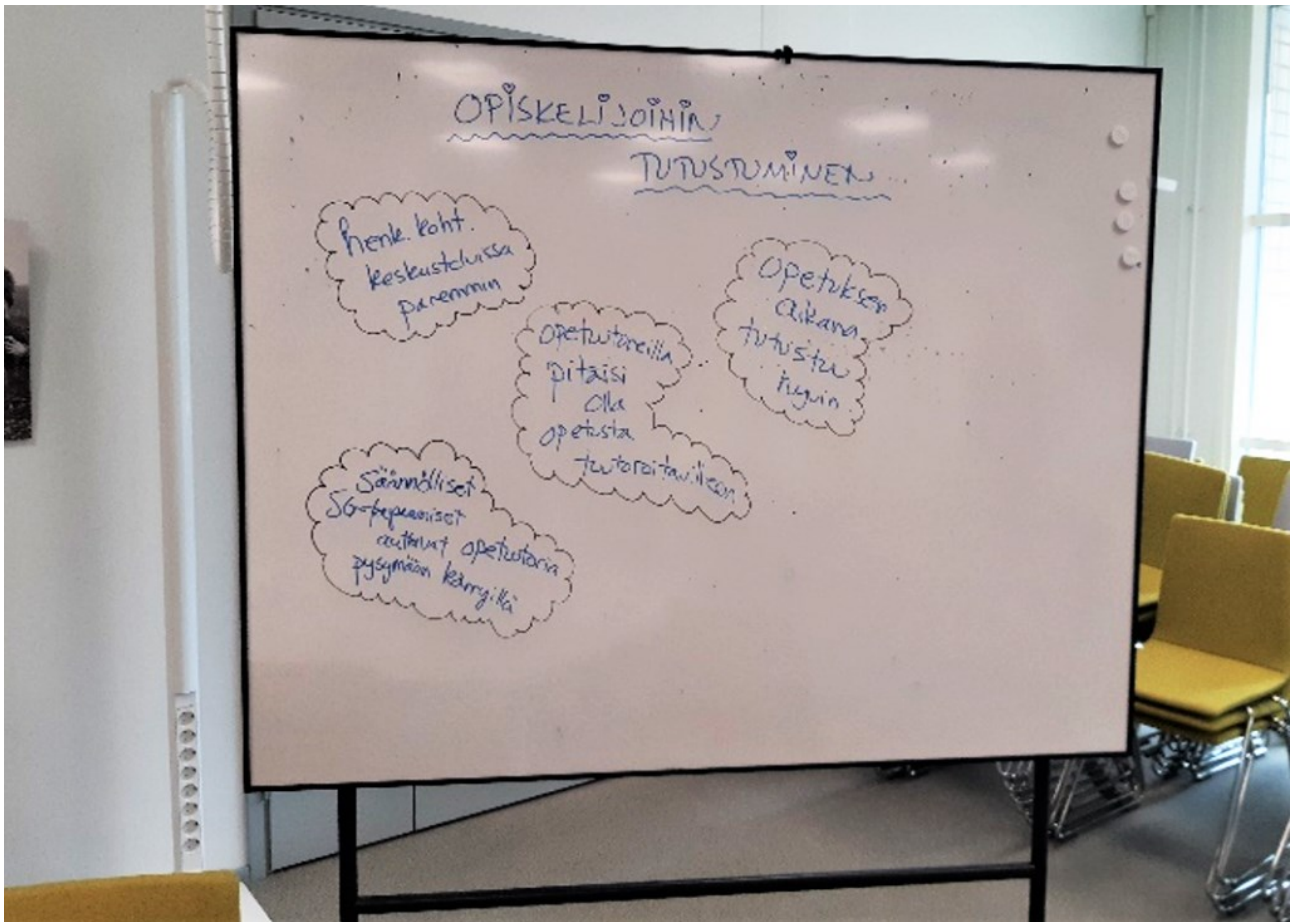 OPISKELIJOIHIN
TUTUSTUMINEN
henk. koht.
keskusteluissa
paremmin
opetuksen
aikana
tutustuu
hyvin
opetuutoreilla
pitäisi
olla
opetusta
tuutoroitavilleen
Säännölliset
SG-tapaamiset
auttavat opetuutoria
pysymään kärryillä